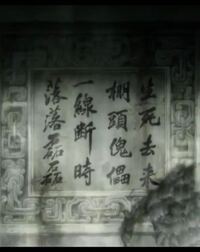 生死去来
棚頭傀儡
一線断時
落落磊磊